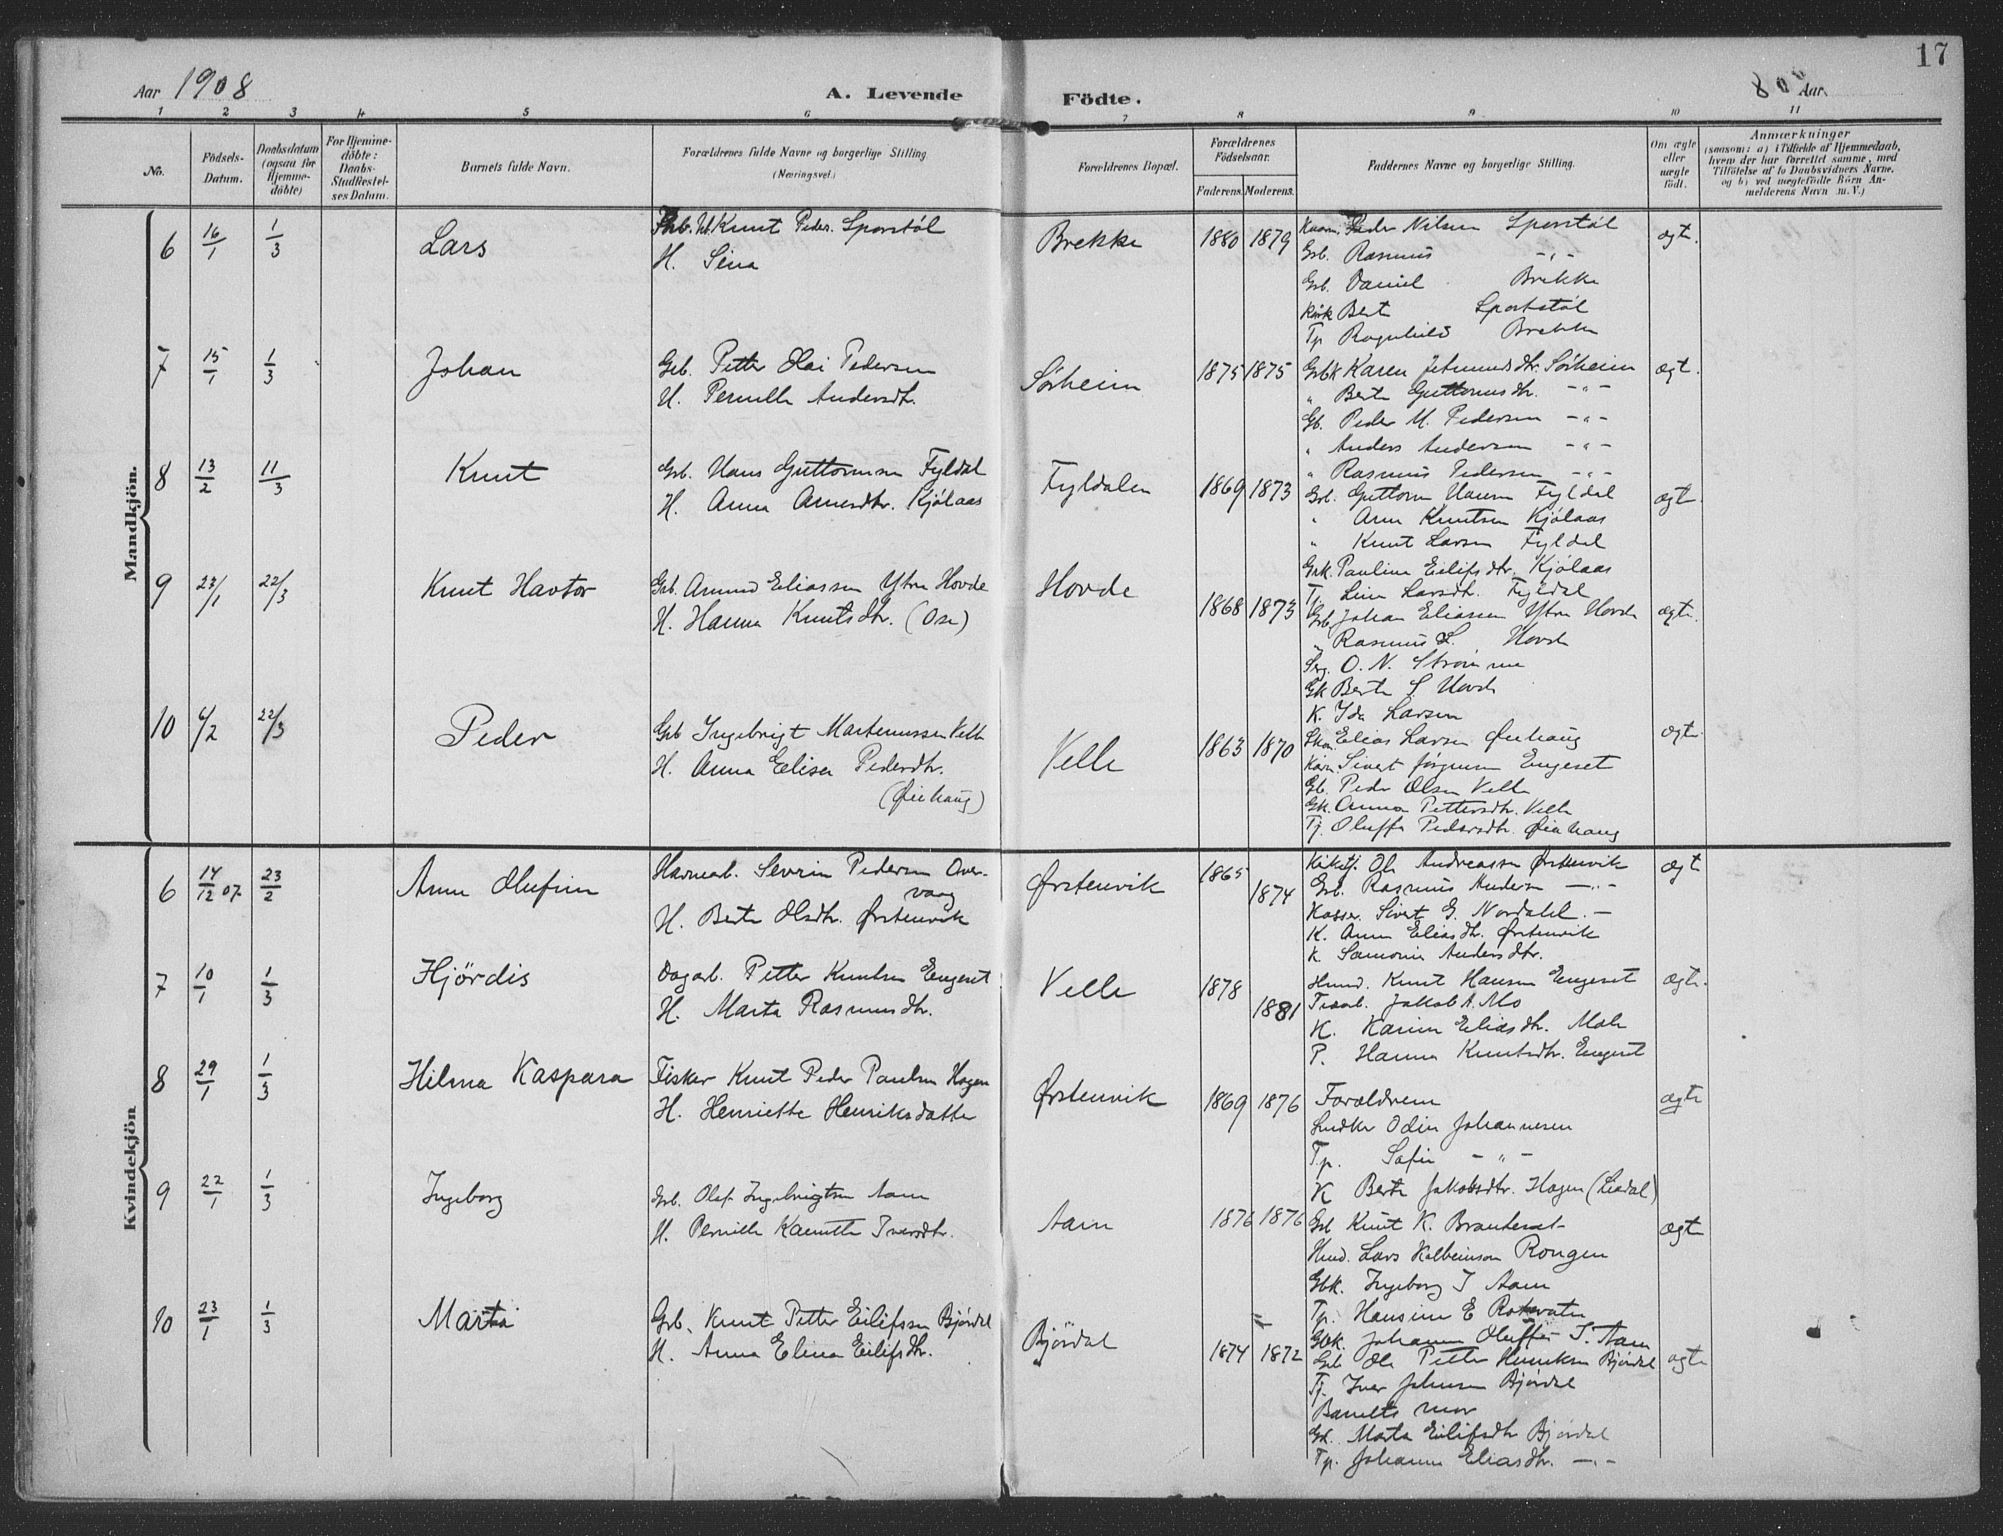 17
Aar 1908
A. Levende
Födte.
Aar
1 2 3 4 5 6 7 8 9 10 11
No.
Födsels-
Datum.
Daabsdatum
(ogsaa for
Hjemme-
döbte)
For Hjemme-
döbte:
Daabs-
Stadfæstel-
ses Datum.
Barnets fulde Navn.
Forældrenes fulde Navne og borgerlige Stilling
(Næringsvei.)
Forældrenes Bopæl.
Forældrenes
Födselsaar.
Faderens.
Moderens.
Faddernes Navne og borgerlige Stilling.
Om ægte
eller
uægte
födt.
Anmærkninger
(saasom: a) i Tilfælde af Hjemmedaab,
hvem der har forrettet samme, med
Tilföielse af to Daabsvidners Navne,
og b) ved uægtefödte Börn An-
melderens Navn m. V.)
Mandkjön.
6 16/1 1/3 Lars
Knut Peder. Sporstøl
H. Sina
Brekke 1880 1879
Peder Nilsen Sporstøl
Grb. Rasmus -„-
Grb. Daniel Brekke
Berit Sporstøl
Tp Ragnhild Brekke
ægte.
7 15/1 1/3 Johan
Grb. Petter Olai Pedersen
H. Pernille Andersdtr.
Sørheim 1875 1875
Gbk Karen Jetmundsdtr. Sørheim
„ Berte Guttormsdtr. -„-
Gb. Peder M. Pedersen -„-
„ Anders Andersen -„-
„ Rasmus Pedersen -„-
ægt.
8 13/2 11/3 Knut
Grb. Hans Guttormsen Fyldal
H. Anna Arnesdtr. Kjølaas
Fyldalen 1869 1873
Grb. Guttorm Hansen Fyldal
„ Arne Knutsen Kjølaas
„ Knut Larsen Fyldal
Gbk. Pauline Eilifsdtr. Kjølaas
Tj. Line Larsdtr. Fyldal
ægte
9 23/1 22/3 Knut Havtor
Grb. Amund Eliassen Ytre Hovde
H. Hanna Knutsdtr. (Ose)
Hovde 1868 1873
Grb Johan Eliassen Ytre Hovde
„ Rasmus L. Hovde
O. N. Strømme
Gk Berte S. Hovde
K. Ida Larsen
ægte.
10 6/2 22/3 Peder
Grb Ingebrigt Martinussen Velle
H. Anna Elise Pedersdtr.
(Øiehaug)
Velle 1863 1870
Elias Larsen Øiehaug
Sivert Jørgensen Engeset
Gb. Peder Olsen Velle
Gk. Anna Pettersdtr. Velle
Tj. Oluffa Pedersdtr. Øiehaug
ægte.
Kvindekjön
6 14/12 07 23/2 Anne Olufine
Havnearb. Severin Pedersen Over-
vaag
H. Berte Olsdtr. Ørstenvik
Ørstenvik 1865 1874
Ole Andreassen Ørstenvik
Grb. Rasmus Anders -„-
Kasser. Sivert G. Nordahl -
K. Anne Eliasdtr. Ørstenvik
K Andersdtr.
ægt
7 10/1 1/3 Hjørdis
Dagarb. Petter Knutsen Engeset
H. Marta Rasmusdtr.
Velle 1878 1881
Knut Hansen Engeset
Jakob A. Mo
K. Karine Eliasdtr. Mole
P. Hanna Knutsdtr. Engeset
ægte.
8 29/1 1/3 Hilma Kaspara
Fisker Knut Peder Paulsen Hagen
H. Henriette Henriksdatter
Ørstenvik 1869 1876
Forældrene
Odin Johannesen
T.p. Sofie -„-
K Berte Jakobsdtr. Hagen (Liadal)
ægte
9 22/1 1/3 Ingeborg
Grb. Olaf Ingebrigtsen Aam
H. Pernille Iversdtr.
Aam 1876 1876
Grb Knut K. Brauteset
Lars Kolbeinson Rongen
Gbk. Ingeborg I Aam
Tp. Hansine E Rotevatn
Gbk. Johanne Oluffa I. Aam
ægte
10 23/1 1/3 Marta
Grb. Knut Petter Eilifssen Bjørdal
H. Anna Elina Eilifsdtr.
Bjørdal 1874 1872
Grb Ole Petter Henriksen Bjørdal
Tj. Iver Johnsen Bjørdal
Barnets mor
Gk. Marta Eilifsdtr Bjørdal
Tp. Johanne Eliasdtr. -„-
ægte